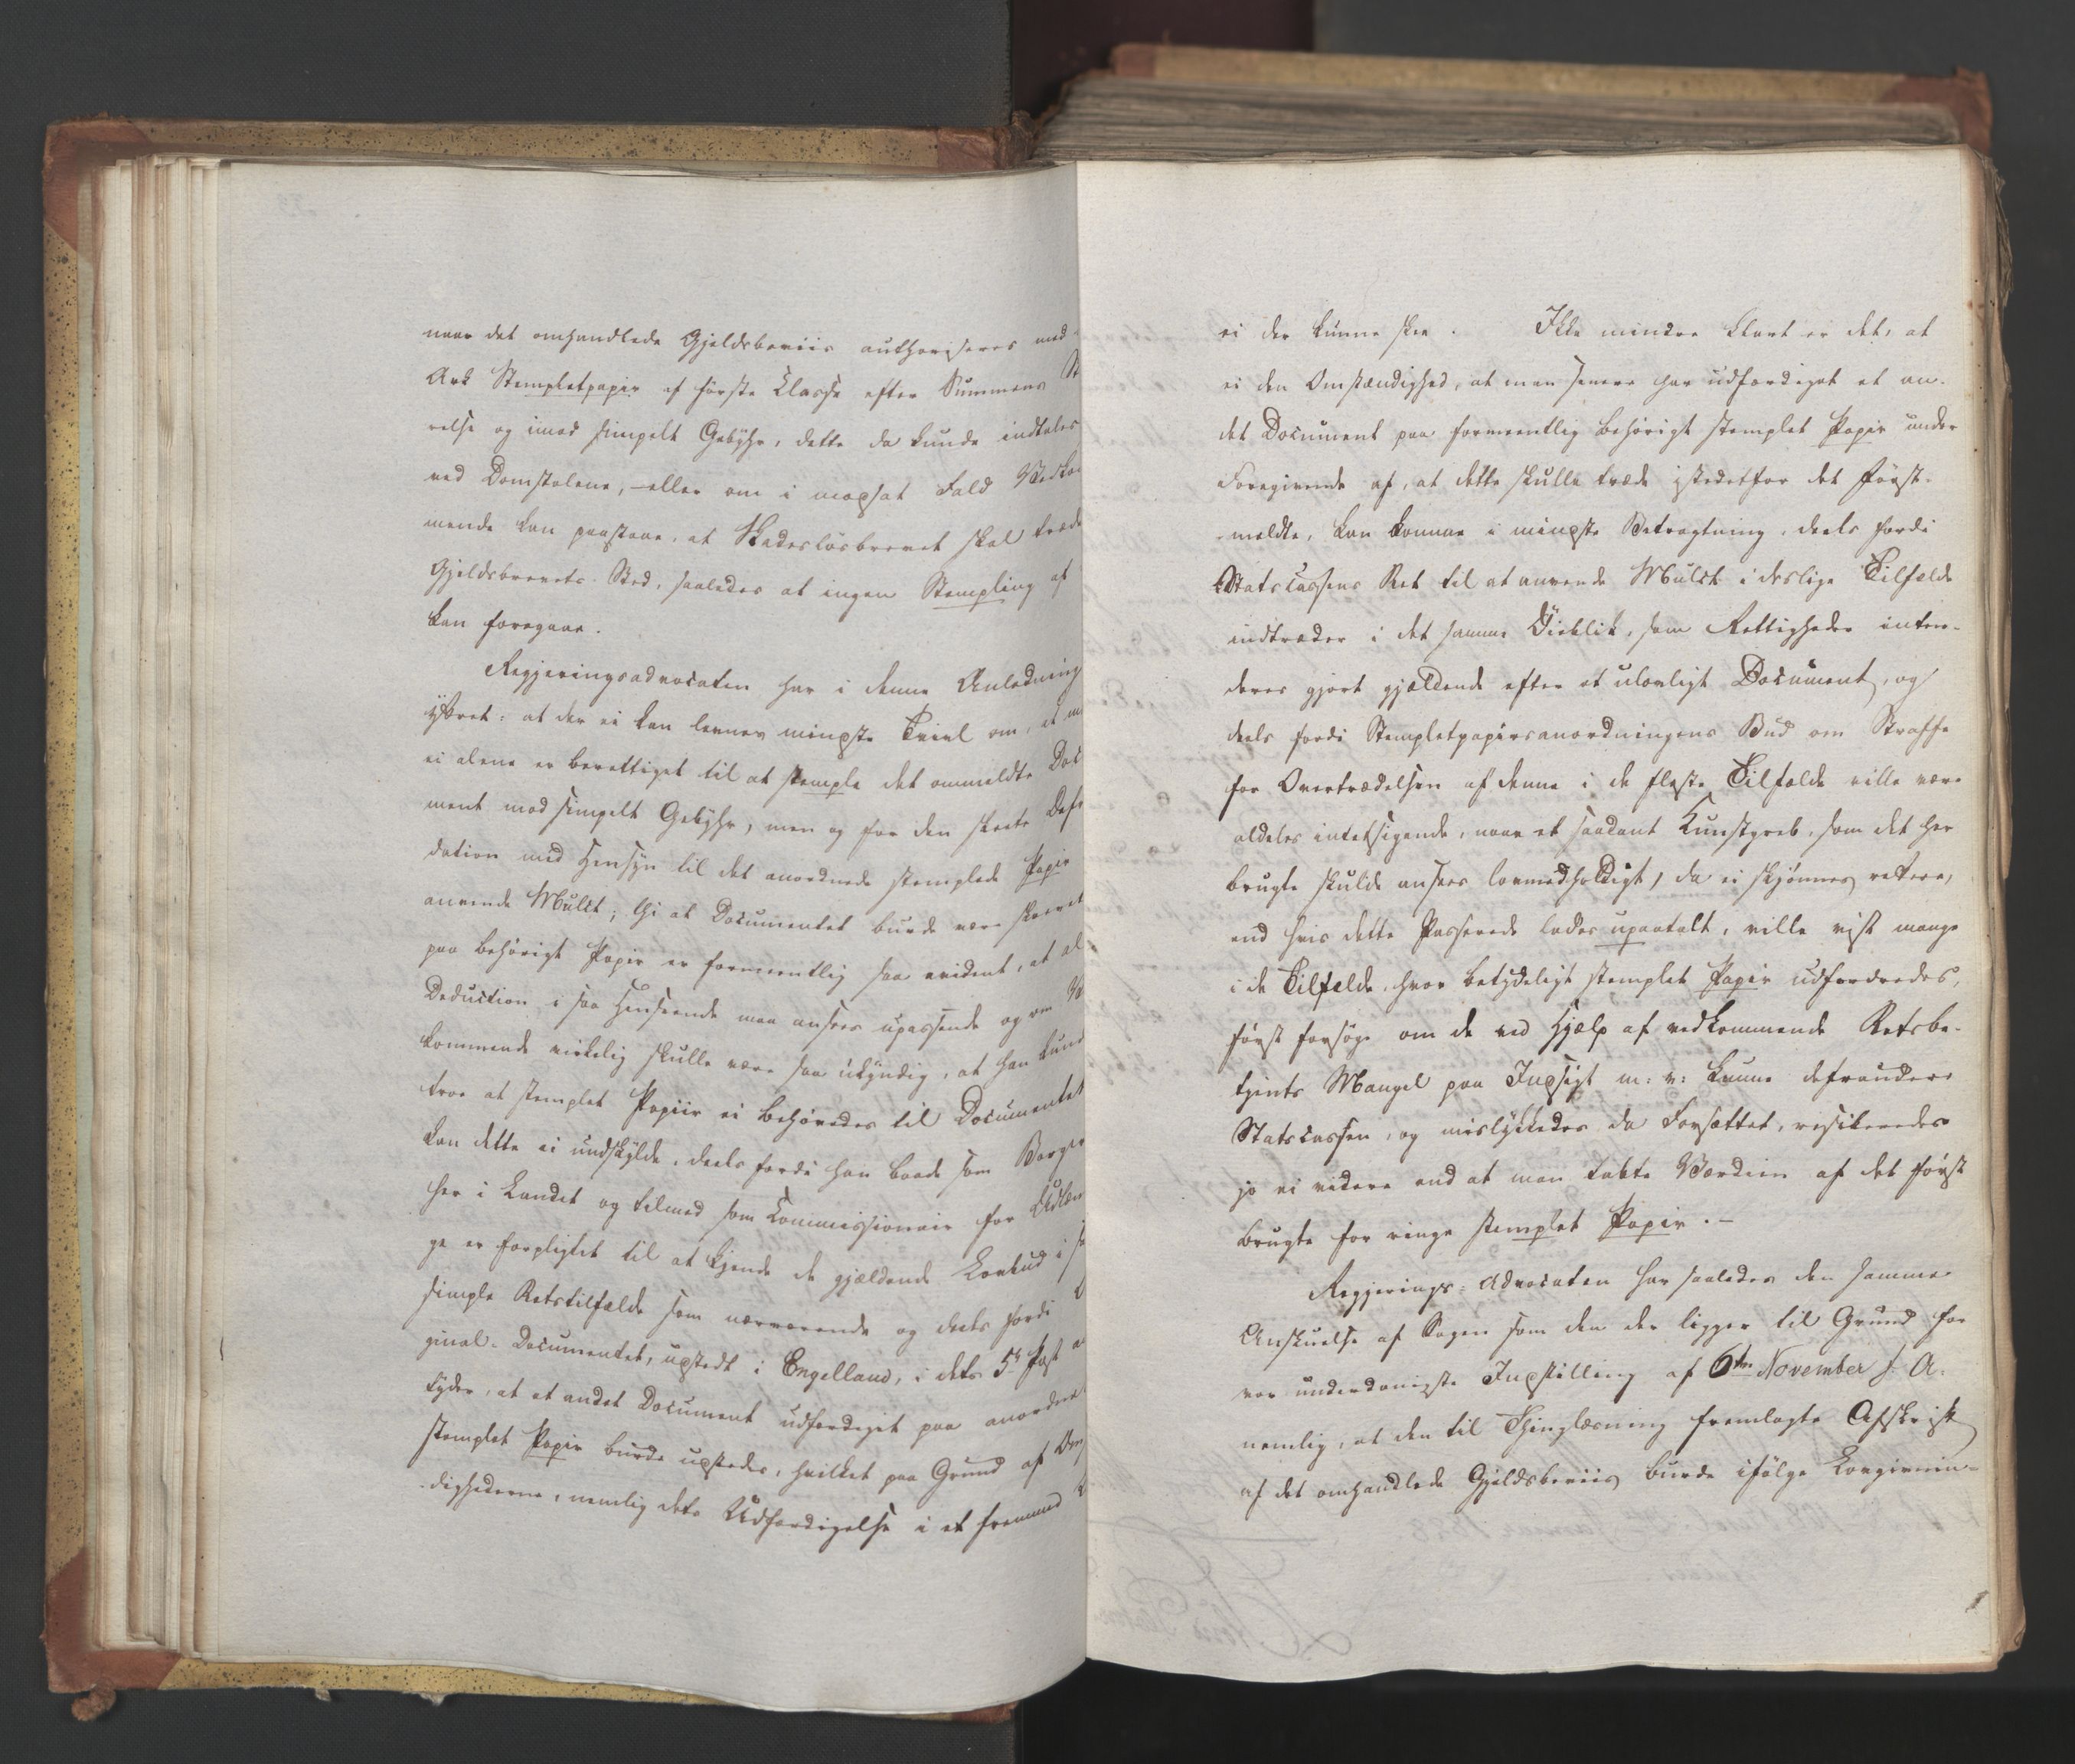 naar det omhandlede Gjeldsbeviis authoriseres med
Ark Stempletpapir af første Classe efter Summens St
relse og imod simpelt Gebyhr, dette da kunde indtales
ved Domstolene, eller om i modsat Fald Vedko
mende kan paastaae, at Skadesløsbrevet skal træde
Gjeldsbrevets Sted, saaledes at ingen Stempling af
kan foregaae.
Regjeringsadvocaten har i denne Anledning
yttret: at der ei kan levnes mindste Tvivl om, at m
ei alene er berettiget til at stemple det ommeldte Doc
ment mod simpelt Gebyhr, men og for den skeete Defr
dation med Hensyn til det anordnede stemplede Papir
anvende Mulct; thi at Documentet burde være skrevet
paa behørigt Papir er formeentlig saa evident, at al
Deduction i saa Henseende maa ansees upassende og om V
kommende virkelig skulle være saa ukyndig, at han kund
troe at stemplet Papiir ei behøvedes til Documentet
kan dette ei undskylde, deels fordi han baade som Borger
her i Landet og tilmed som Commissionair for Udlæn
ge er forpligtet til at kjende de gjældende Lovbud i sa
simple Retstilfælde som nærværende og deels fordi
ginal-Documentet, udstedt i Engelland, i dets 5te Post
tyder, at et andet Document udfærdiget paa anordnet
stemplet Papir burde udstedes, hvilket paa Grund af Om
dighederne, nemlig dets Udfærdigelse i et fremmed
ei der kunne skee. Ikke mindre klart er det, at
ei den Omstændighed, at man senere har udfærdiget et an-
det Document paa formeentlig behørigt stemplet Papir under
Foregivende af, at dette skulle træde istedetfor det først-
meldte, kan komme i mindste Betragtning, deels fordi
Statscassens Ret til at anvende Mulct i deslige Tilfælde
indtræder i det samme Øieblik, som Rettigheder inten-
deres gjort gjældende efter et ulovligt Document, og
deels fordi Stempletpapirsanordningens Bud om Straffe
for Overtrædelsen af denne i de fleste Tilfælde ville være
aldeles intetsigende, naar et saadant Kunstgreb, som det her
brugte skulde ansees lovmedholdigt, da ei skjønnes rettere,
end hvis dette Passerede lades upaatalt, ville vist mange
i de Tilfælde, hvor betydeligt stemplet Papir udfordredes,
først forsøge om de ved Hjælp af vedkommende Retsbe-
tjents Mangel paa Indsigt m: v: kunne defraudere
Statscassen, og mislykkedes da Forsættet, risikeredes
jo ei videre end at man tabte Værdien af det først
brugte for ringe stemplet Papir. —
Regjerings-Advocaten har saaledes den samme
Anskuelse af Sagen som den der ligger til Grund for
vor underdanigste Indstilling af 6te November f: A:
nemlig, at den til Thinglæsning fremlagte Afskrift
af det omhandlede Gjeldsbeviis burde ifølge Lovgivnin-